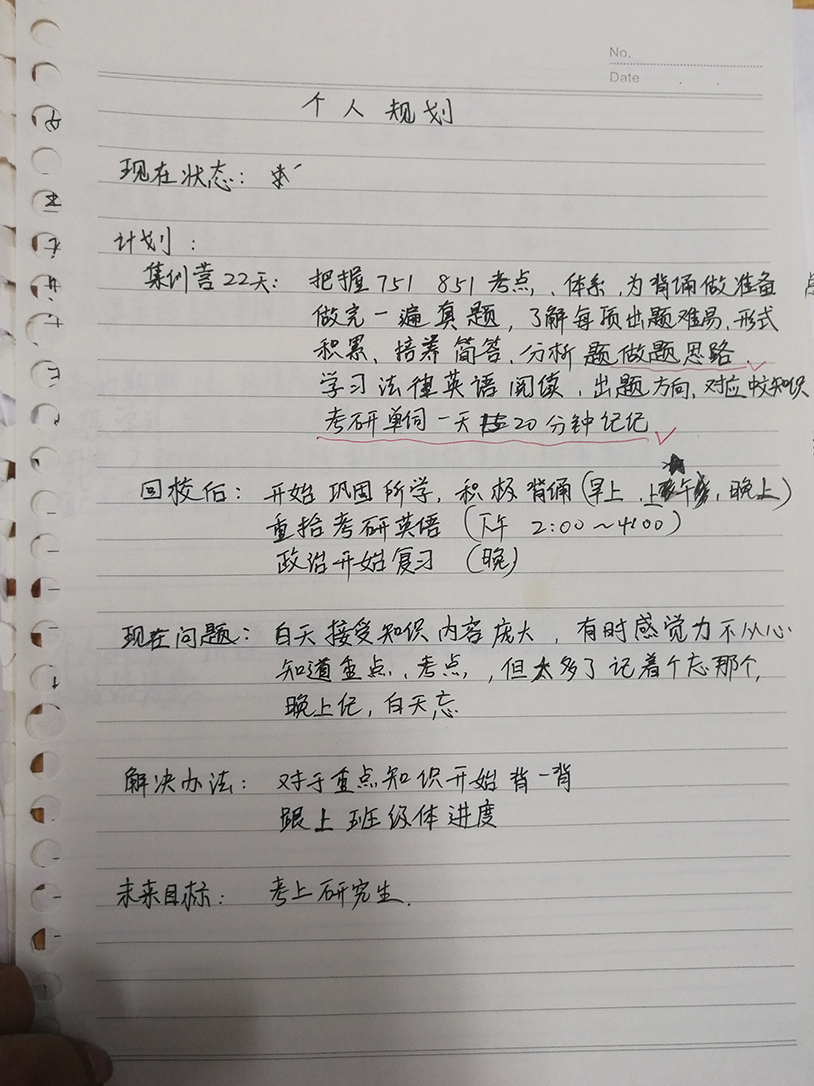 No.
Date
个人规划
现在状态：
计划：
集训营22天：把握751 851考点、体系，为背诵做准备
做完一遍真题，了解每项出题难易、形式
积累、培养简答、分析题做题思路、
学习法律英语阅读，出题方向，对应中文知识
考研单词一天 20分钟记记
回校后：开始巩固所学，积极背诵（早上，上午，晚上）
重拾考研英语（下午 2:00～4:00）
政治开始复习（晚）
现在问题：白天接受知识内容庞大，有时感觉力不从心
知道重点、考点，但太多了记着个忘那个，
晚上记，白天忘
解决办法：对于重点知识开始背一背
跟上班级体进度
未来目标：考上研究生.